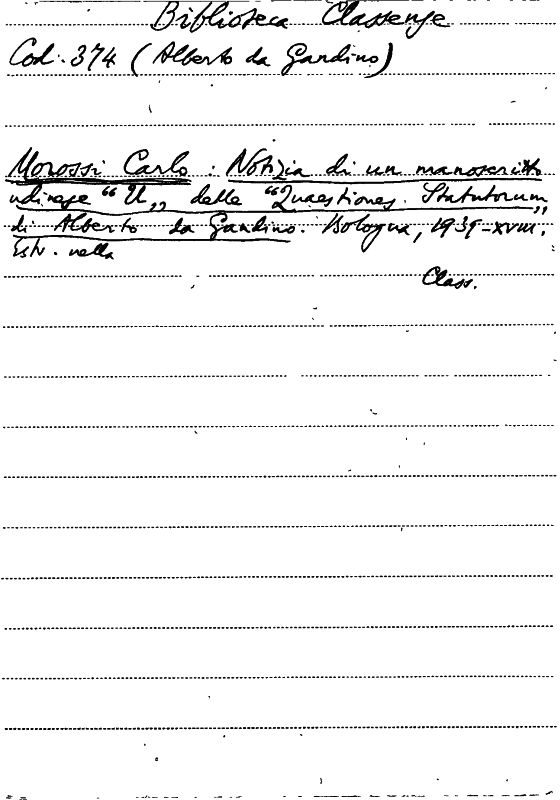 Biblioteca Classense
Cod. 374 (Alberto da Gandino)
Morossi Carlo : Notizia di un manoscritto
udinese “U„ delle “Quaestiones Statutorum„
di Alberto da Gandino. Bologna, 1939-XVIII.
Estr. nella
Class.